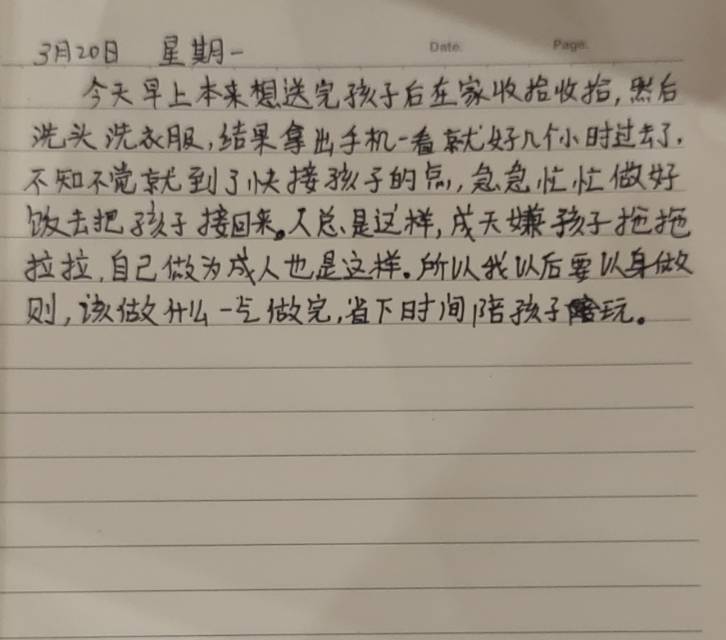 3月20日 星期一
Date. Page.
今天早上本来想送完孩子后在家收拾收拾,然后
洗头洗衣服,结果拿出手机一看就好几个小时过去了,
不知不觉就到了快接孩子的点,急急忙忙做好
饭去把孩子接回来。人总是这样,成天嫌孩子拖拖
拉拉,自己做为成人也是这样。所以我以后要以身做
则,该做什么一气做完,省下时间陪孩子玩。